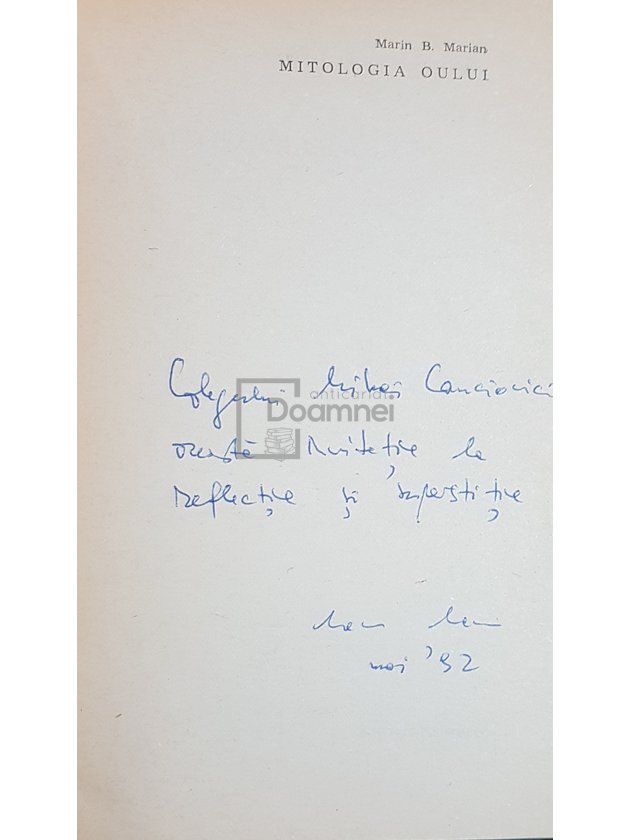 Marin B. Marian
MITOLOGIA OULUI
Colegului Mihai Canciovici
anticariat
Doamnei
această invitație la
reflecție și superstiție
mai '92